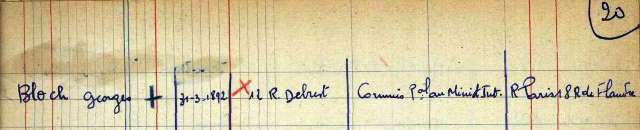 20
Bloch Georges + 31-3-1892 X 12 R. Debret Commis Pal au Minist Int. R Paris 18 R de Flandre